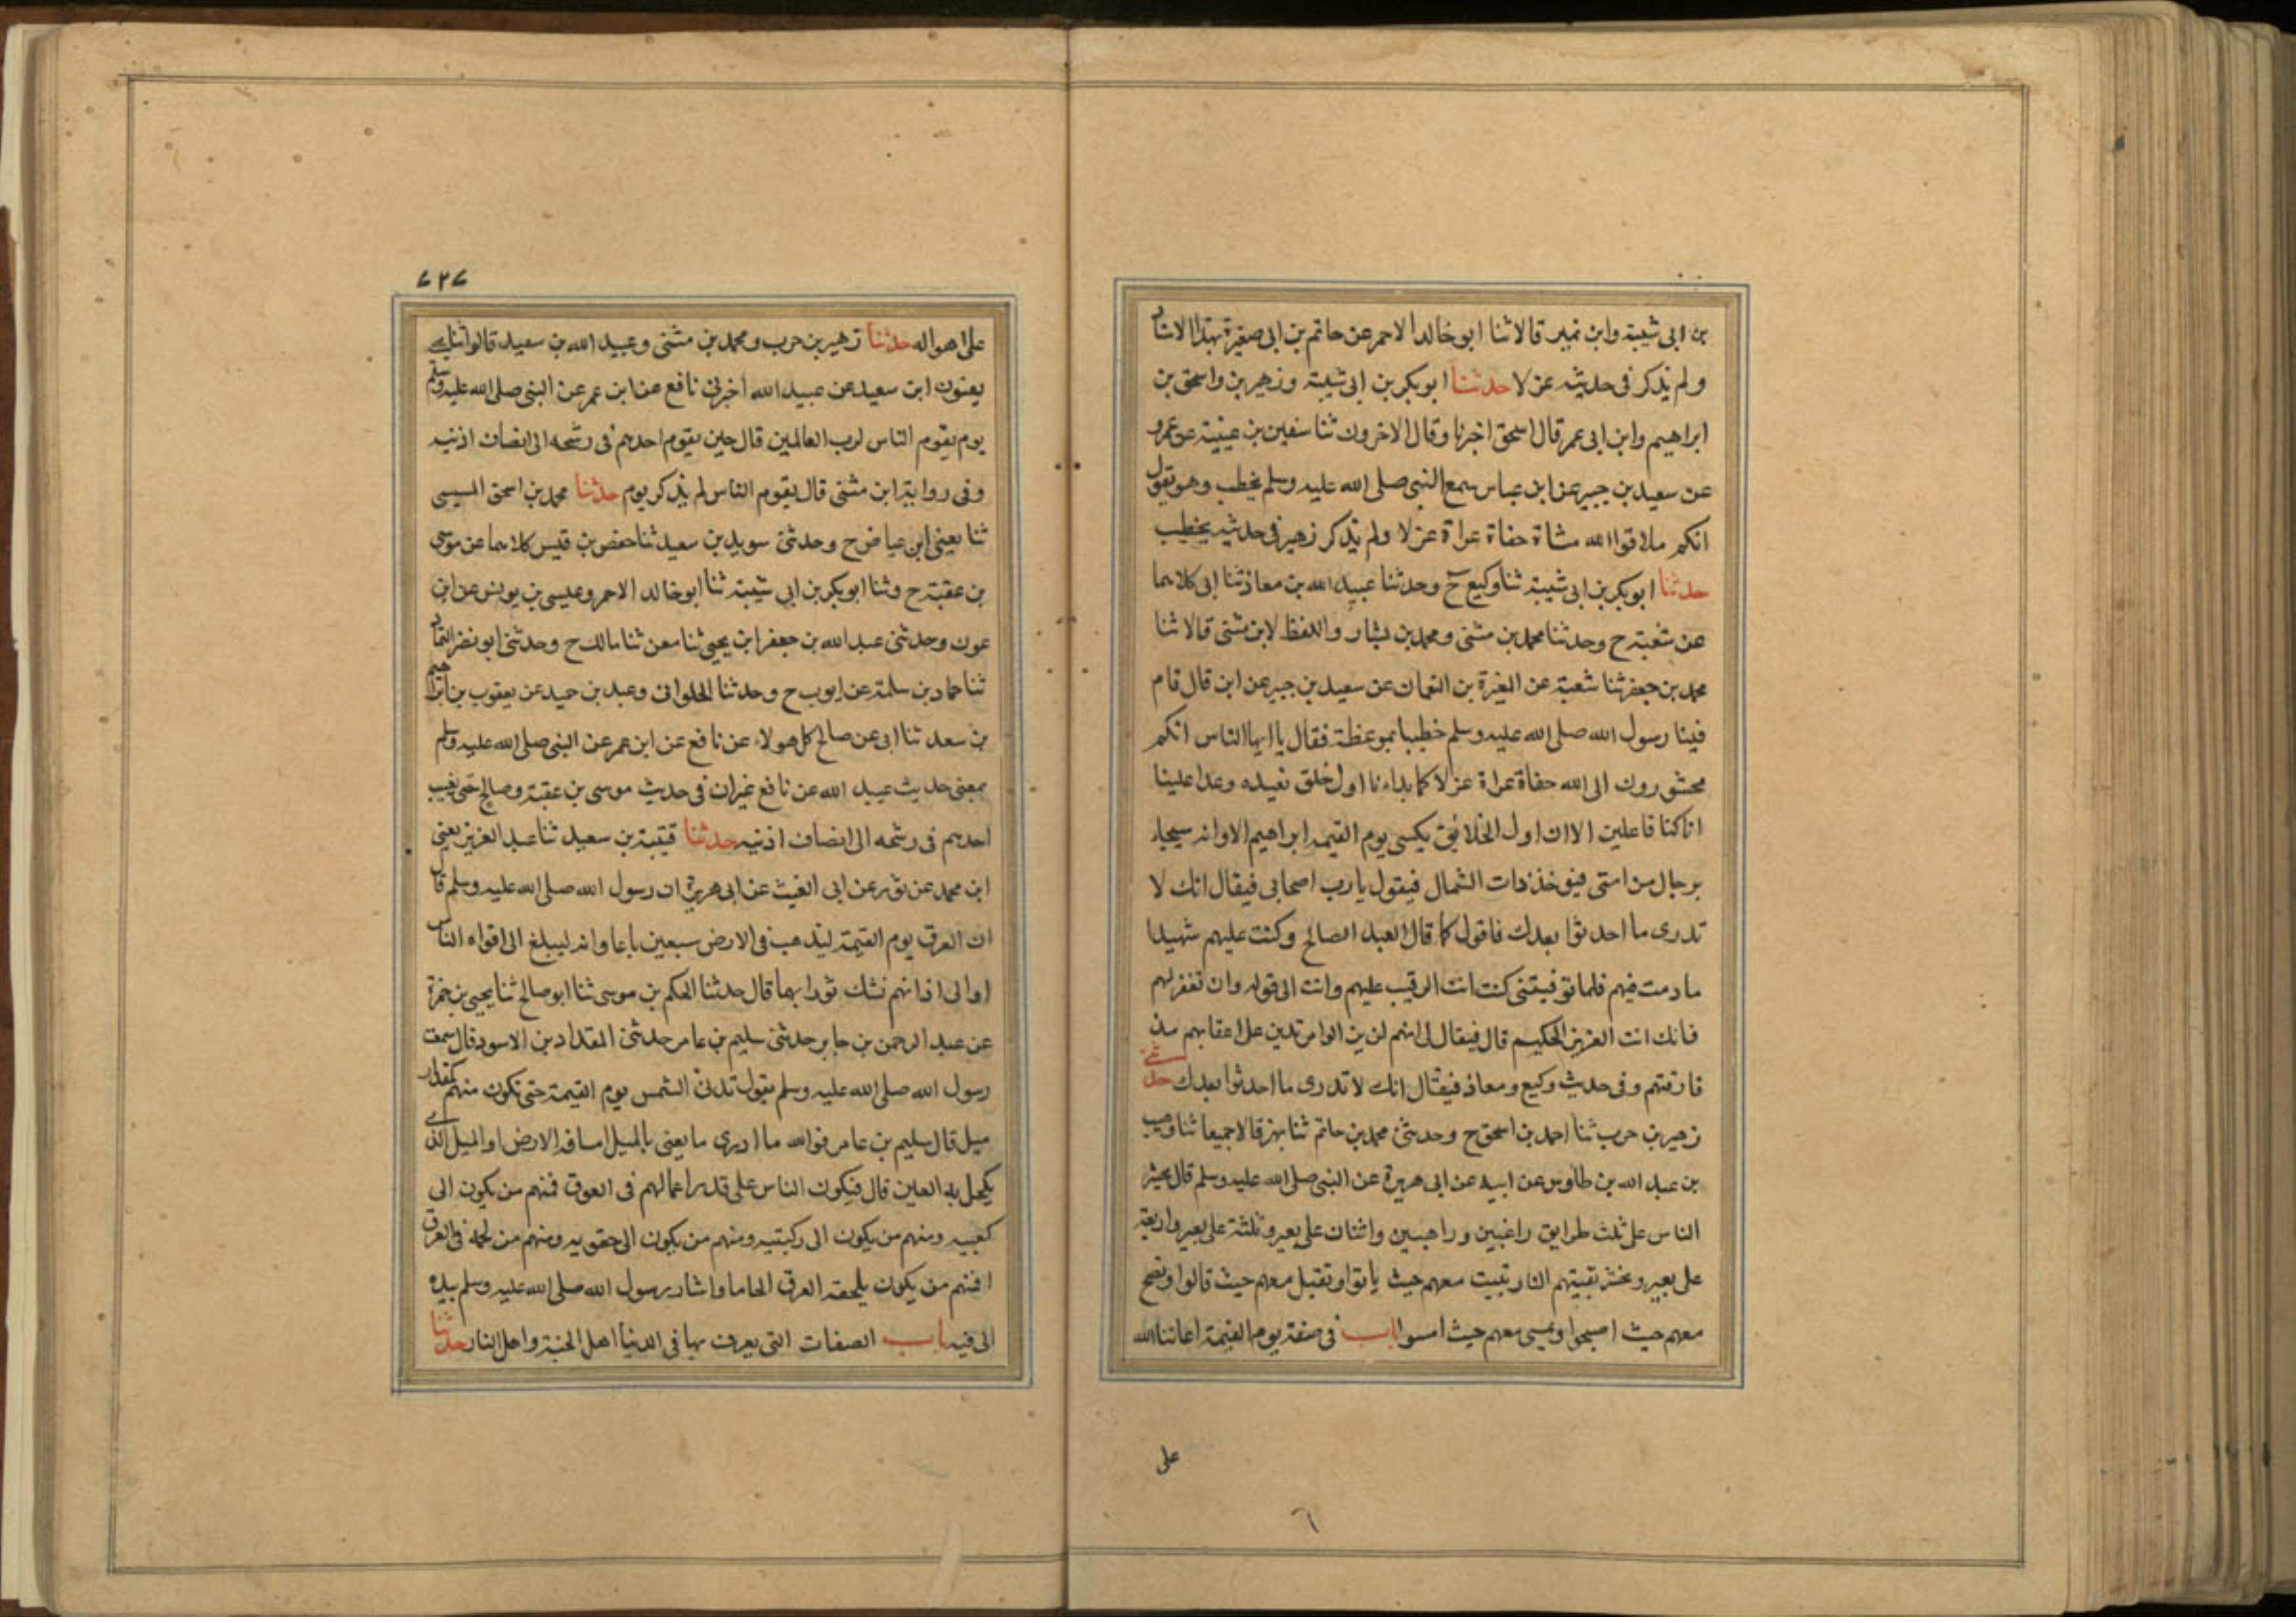 بن ابى شيبة وابن نمير قالا ثنا ابو خالد الاحمر عن حاتم بن ابى صغيرة بهذا الاسناد
ولم يذكر فى حديثه عزلا حدثنا ابو بكر بن ابى شيبة وزهير بن واسحق بن
ابراهيم وابن ابى عمر قال اسحق اخبرنا وقال الاخرون ثنا سفين بن عيينة عن عمرو
عن سعيد بن جبير عن ابن عباس سمع النبى صلى الله عليه وسلم يخطب وهو يقول
انكم ملاقوا الله مشاة حفاة عراة عزلا ولم يذكر زهير فى حديثه يخطب
حدثنا ابو بكر بن ابى شيبة ثنا وكيع ح وحدثنا عبيد الله بن معاذ ثنا ابى كلاهما
عن شعبة ح وحدثنا محمد بن مثنى ومحمد بن بشار واللفظ لابن مثنى قالا ثنا
محمد بن جعفر ثنا شعبة عن المغيرة بن النعمان عن سعيد بن جبير عن ابن قال قام
فينا رسول الله صلى الله عليه وسلم خطيبا بموعظة فقال يا ايها الناس انكم
محشورون الى الله حفاة عراة عزلا كما بداءنا اول خلق نعيده وعدا علينا
انا كنا فاعلين الا ان اول الخلايق يكسى يوم القيمه ابراهيم الا وانه سيجاء
برجال من امتى فيوخذ ذات الشمال فيقول يا رب اصحابى فيقال انك لا
تدرى ما احدثوا بعدك فاقول كما قال العبد الصالح وكنت عليهم شهيدا
ما دمت فيهم فلما توفيتنى كنت انت الرقيب عليهم وانت الى قوله وان تغفر لهم
فانك انت العزيز الحكيم قال فيقال لى انهم لن يزالوا مرتدين على اعقابهم منذ
فارقتهم وفى حديث وكيع ومعاذ فيقال انك لا تدرى ما احدثوا بعدك حدثنى
زهير بن حرب ثنا احمد بن اسحق ح وحدثنى محمد بن حاتم ثنا بهز قالا جميعا ثنا وهيب
بن عبد الله بن طاوس عن ابيه عن ابى هريرة عن النبى صلى الله عليه وسلم قال يحشر
الناس على ثلث طرايق راغبين وراهبين واثنان على بعير وثلثة على بعير واربعة
على بعير وتحشر بقيتهم النار تبيت معهم حيث باتوا وتقيل معهم حيث قالوا وتصبح
معهم حيث اصبحوا وتمسى معهم حيث امسوا باب فى صفة يوم القيمة اعاننا الله
على
٦
٧٢٧
على اهواله حدثنا زهير بن حرب ومحمد بن مثنى وعبيد الله بن سعيد قالوا ثنا يحيى
يعنون ابن سعيد عن عبيد الله اخبرنى نافع عن ابن عمر عن النبى صلى الله عليه وسلم
يوم يقوم الناس لرب العالمين قال حين يقوم احدهم فى رشحه الى انصاف اذنيه
وفى رواية ابن مثنى قال يقوم الناس لم يذكر يوم حدثنا محمد بن اسحق المسيبى
ثنا يعنى ابن عياض ح وحدثنى سويد بن سعيد ثنا حفص بن قيس كلاهما عن موسى
بن عقبة ح وثنا ابو بكر بن ابى شيبة ثنا ابو خالد الاحمر وعيسى بن يونس عن ابن
عون وحدثنى عبد الله بن جعفر ابن يحيى ثنا معن ثنا مالك ح وحدثنى ابو نصر التمار
ثنا حماد بن سلمة عن ايوب ح وحدثنا الحلوانى وعبد بن حميد عن يعقوب بن ابراهيم
بن سعد ثنا ابى عن صالح كل هولاء عن نافع عن ابن عمر عن النبى صلى الله عليه وسلم
بمعنى حديث عبيد الله عن نافع غير ان فى حديث موسى بن عقبة وصالح حتى يغيب
احدهم فى رشحه الى انصاف اذنيه حدثنا قتيبة بن سعيد ثنا عبد العزيز يعنى
ابن محمد عن ثور عن ابى الغيث عن ابى هريرة ان رسول الله صلى الله عليه وسلم قال
ان العرق يوم القيمة ليذهب فى الارض سبعين باعا وانه ليبلغ الى افواه الناس
او الى اذانهم نشك ثور ايهما قال حدثنا الحكم بن موسى ثنا ابو صالح ثنا يحيى بن حمزة
عن عبد الرحمن بن جابر حدثنى سليم بن عامر حدثنى المقداد بن الاسود قال سمعت
رسول الله صلى الله عليه وسلم يقول تدنى الشمس يوم القيمة حتى تكون منهم كمقدار
ميل قال سليم بن عامر فوالله ما ادرى ما يعنى بالميل امسافه الارض او الميل الذى
يكحل به العين قال فيكون الناس على قدر اعمالهم فى العرق فمنهم من يكون الى
كعبيه ومنهم من يكون الى ركبتيه ومنهم من يكون الى حقويه ومنهم من لجمه فى العرق
افمنهم من يكون يلجمه العرق الجاما واشار رسول الله صلى الله عليه وسلم بيده
الى فيه باب الصفات التى يعرف بها فى الدنيا اهل الجنة واهل النار حدثنا